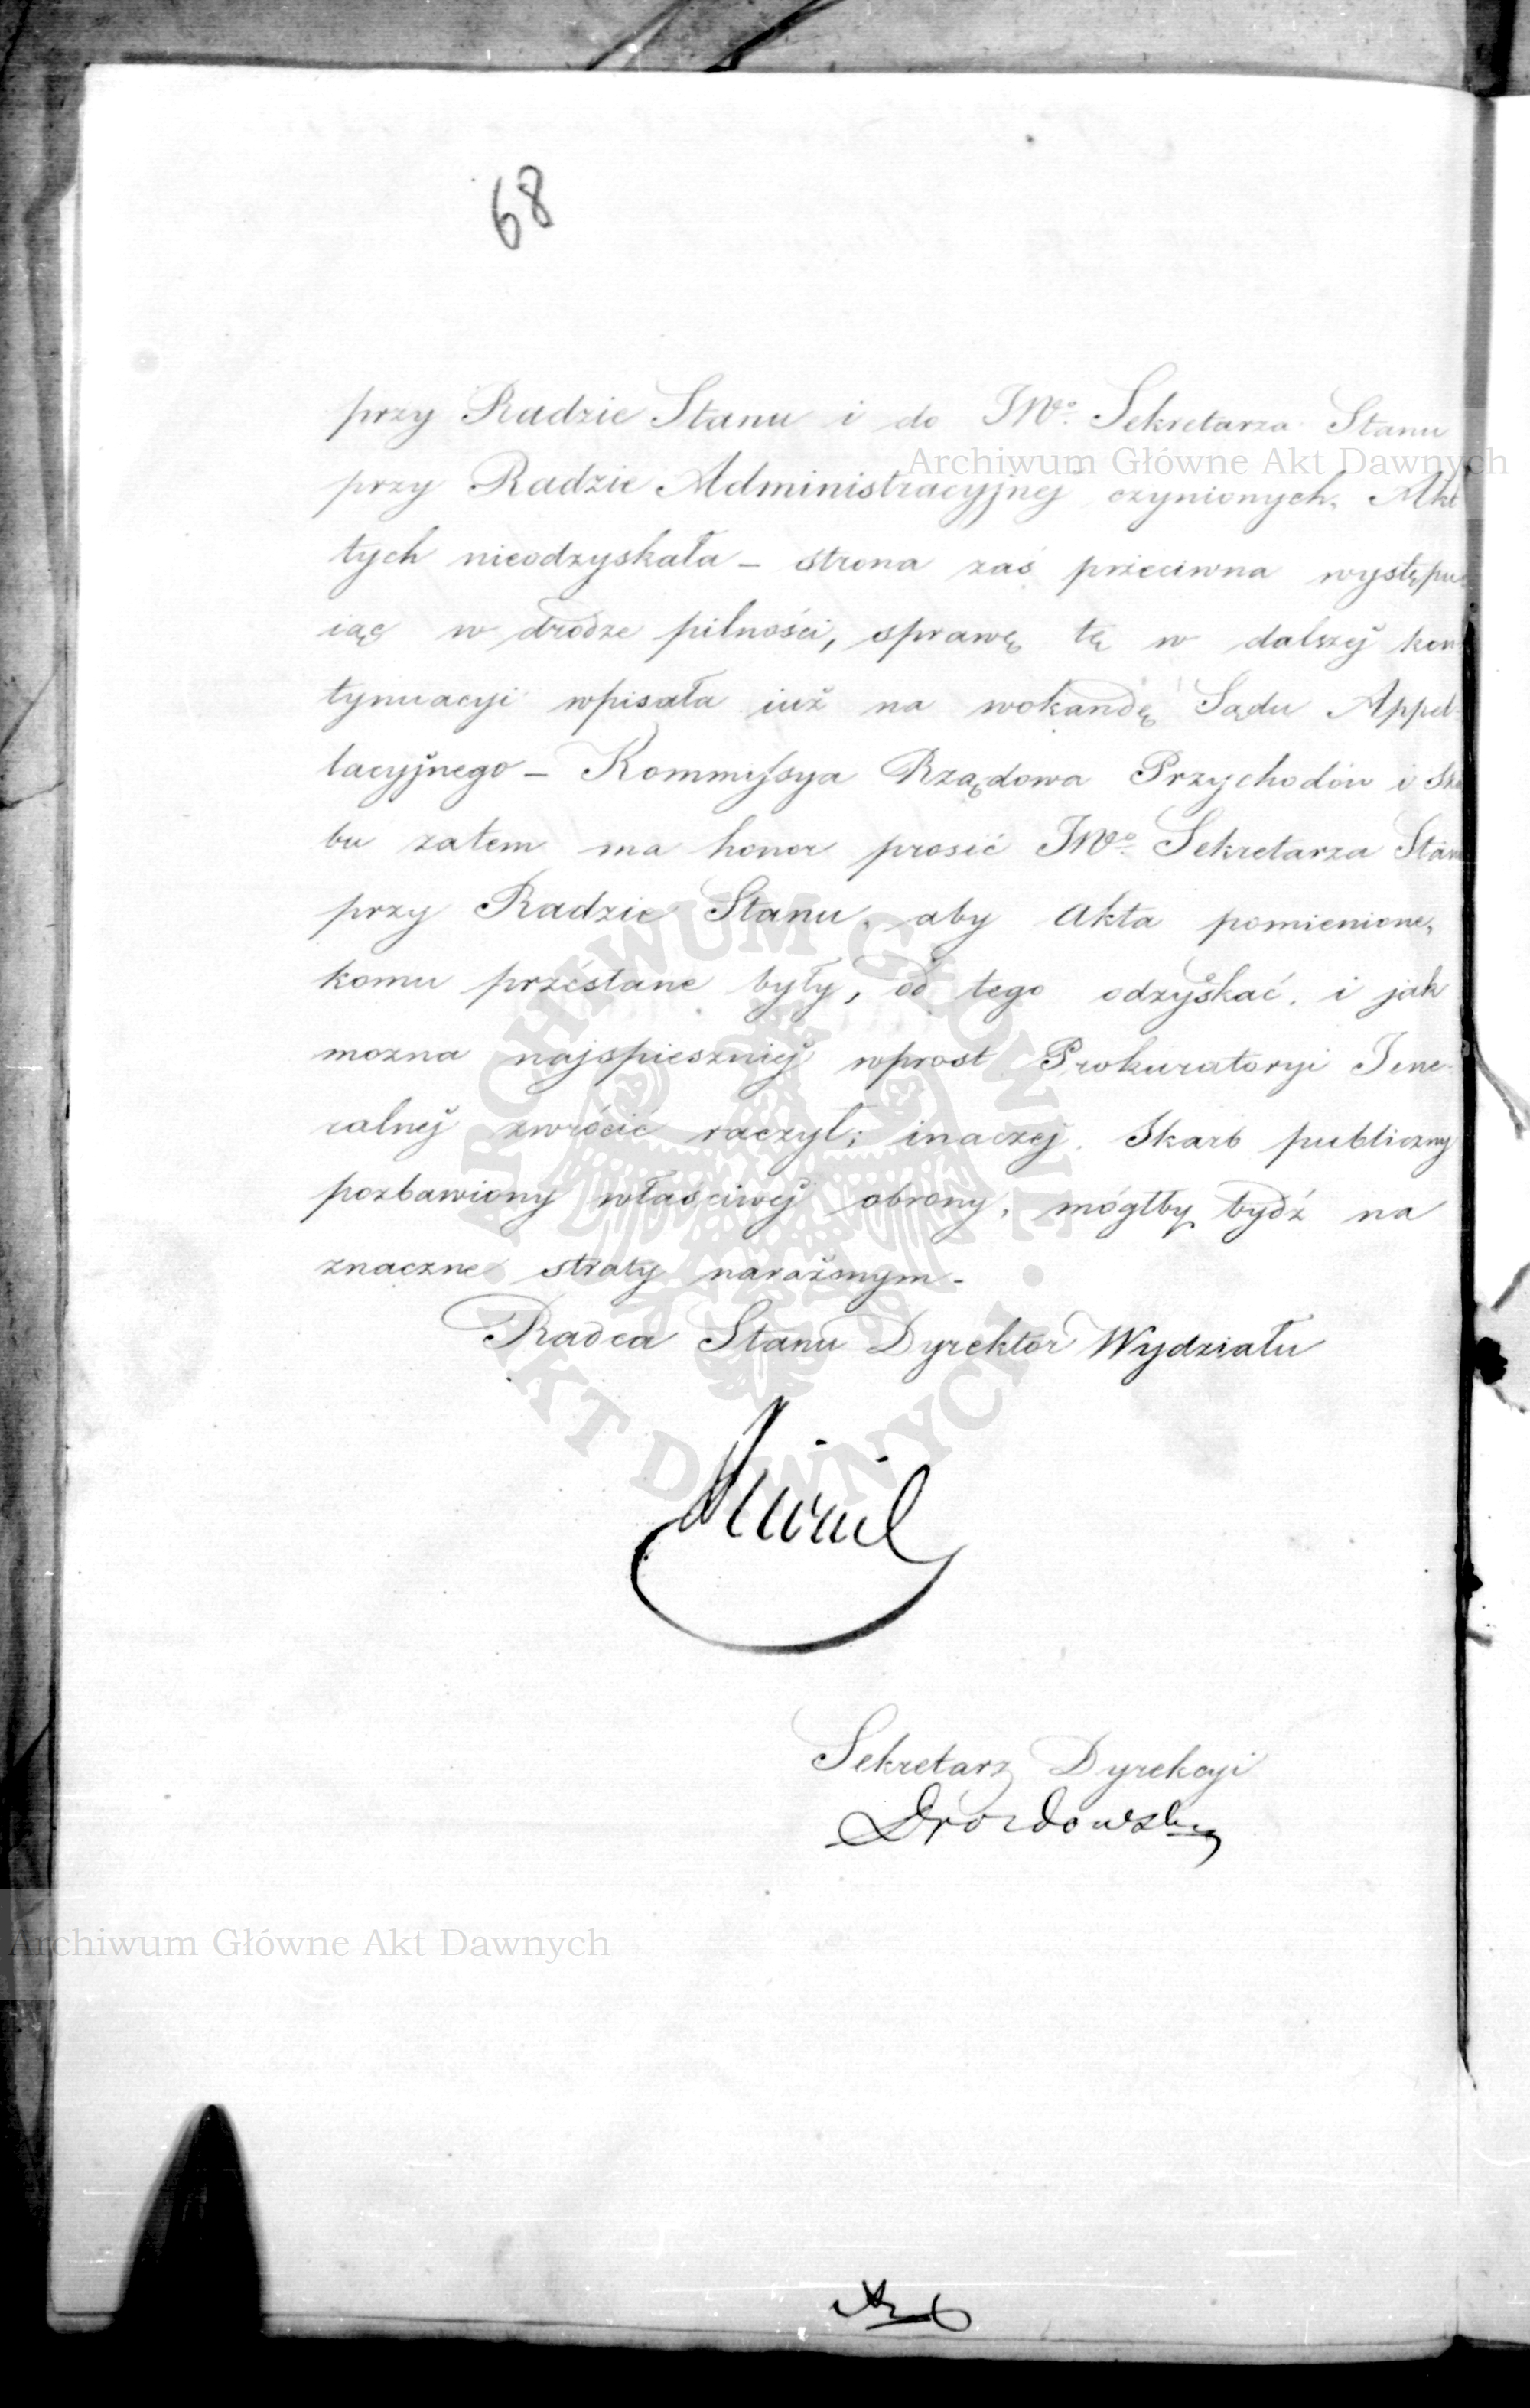 68
przy Radzie Stanu i do JWo. Sekretarza Stanu
Archiwum Główne Akt Dawnych
przy Radzie Administracyjnej czynionych, Akt
tych nieodzyskała – strona zaś przeciwna występu
iąc w drodze pilności, sprawę tę w dalszej kon
tynuacyi wpisała iuż na wokandę Sądu Appel
lacyjnego – Kommissya Rządowa Przychodów i Skar
bu zatem ma honor prosić JWo. Sekretarza Stanu
przy Radzie Stanu, aby Akta pomienione,
komu przesłane były, od tego odzyskać, i jak
można najspieszniej wprost Prokuratoryi Jene-
ralnej zwrócić raczył; inaczej, Skarb publiczny
pozbawiony właściwej obrony, mógłby bydź na
znaczne straty narażonym –
Radca Stanu Dyrektor Wydziału
Sekretarz Dyrekcyi
Drozdowski
ARCHIWUM GŁÓWNE AKT DAWNYCH
Archiwum Główne Akt Dawnych